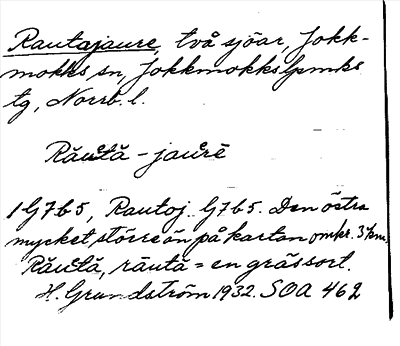 Rautajaure, två sjöar, Jokk-
mokks sn, Jokkmokks lpmks
tg, Norrb. l.
Răută – jaurē
1 G7b5, Rautoj. G7b5. Den östra
mycket större än på kartan omkr. 3 km.
Răută, răută = en grässort.
H. Grundström 1932. SOA 462